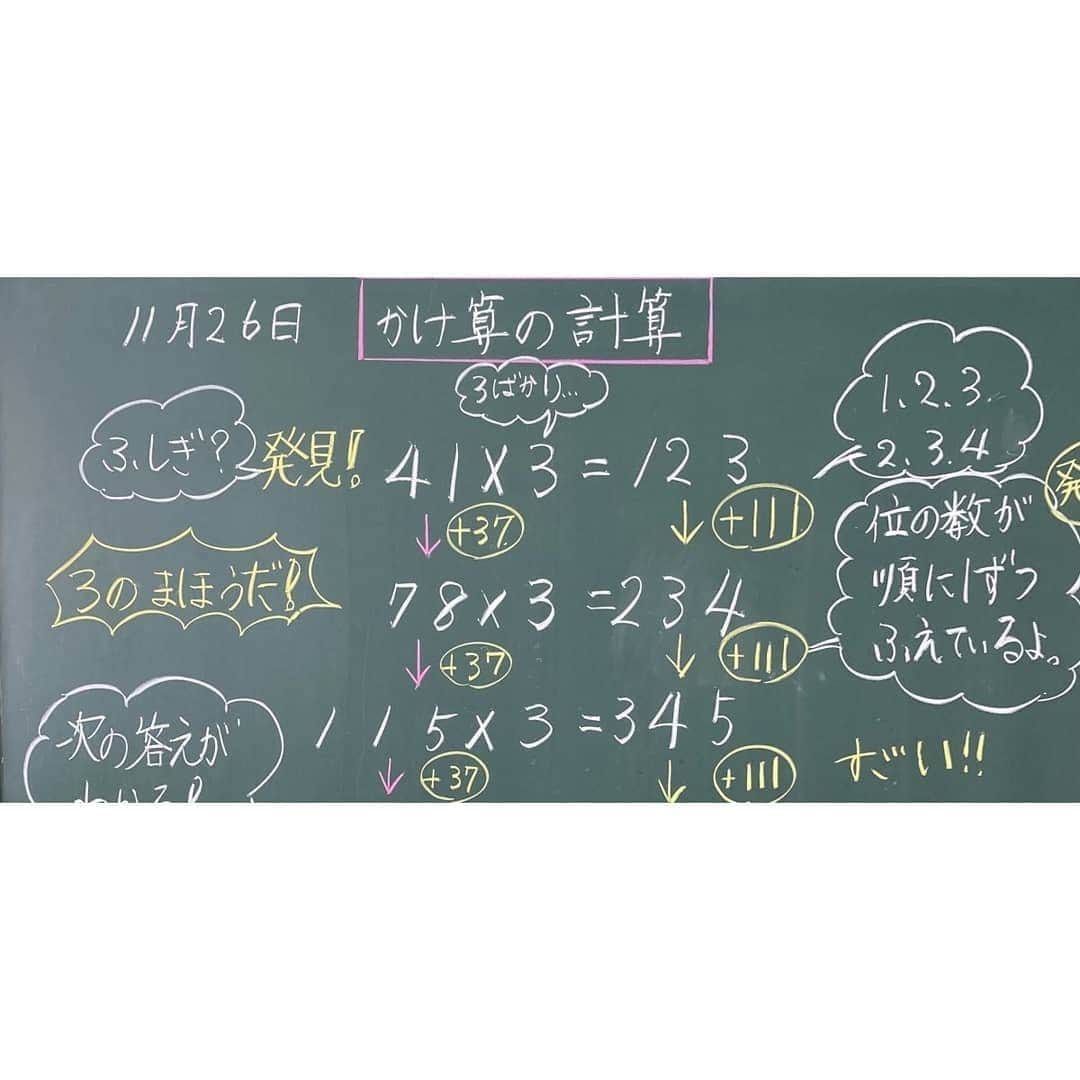 11月26日
かけ算の計算
3ばかり…
ふしぎ?
発見!
41×3=123
1.2.3.
2.3.4
+37
+111
位の数が
順に1ずつ
ふえているよ。
3のまほうだ!
78×3=234
+37
+111
次の答えが
115×3=345
+37
+111
すごい!!